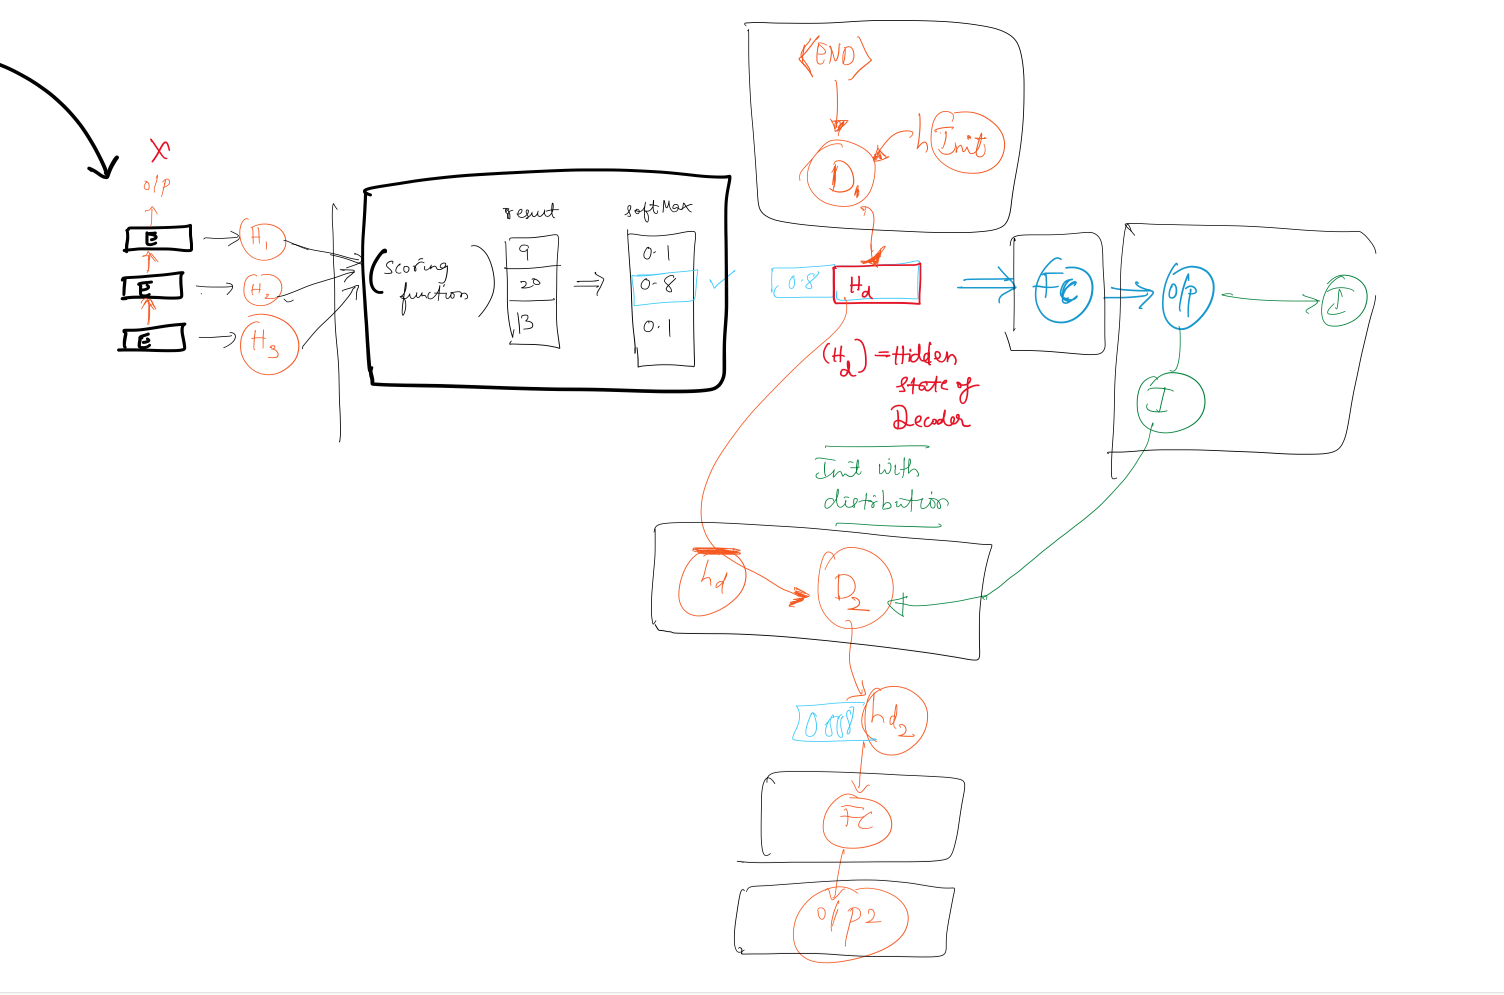 X
o/p
E
E
E
H1
H2
H3
(Scoring
function)
result
9
20
13
softMax
0.1
0.8
0.1
<END>
D1
h Init
0.8
Hd
(Hd) = Hidden
state of
Decoder
FC
o/p
I
I
Init with
distribution
hd
D2
hd2
FC
o/p2